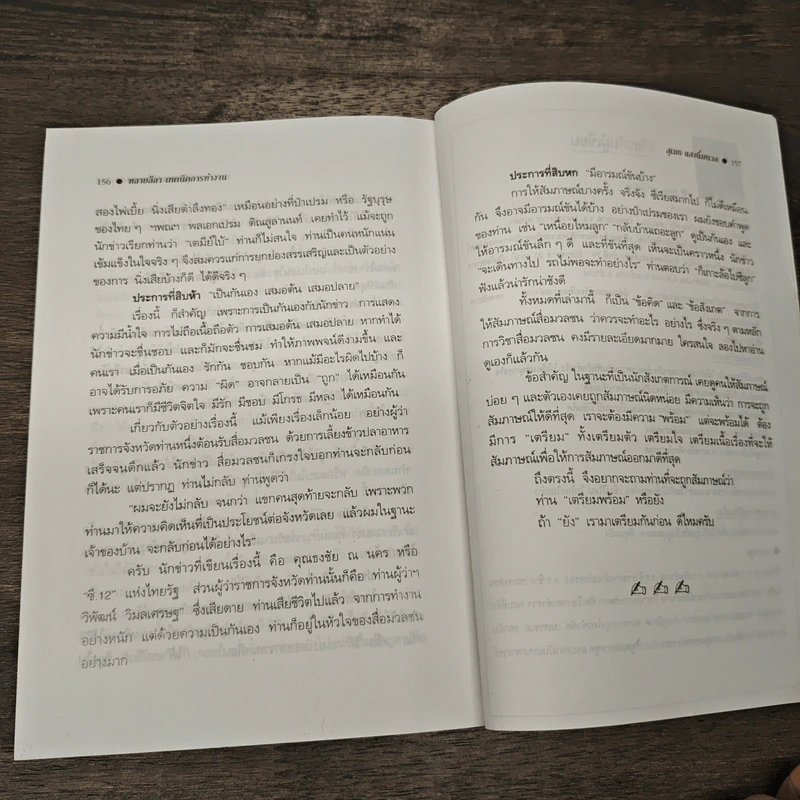 156 ● หลายลีลา เทคนิคการทำงาน
สองไพ่เบี้ย นิ่งเสียตำลึงทอง" เหมือนอย่างที่ป๋าเปรม หรือ รัฐบุรุษ
ของไทย ๆ ฯพณฯ พลเอกเปรม ติณสูลานนท์ เคยทำไว้ แม้จะถูก
นักข่าวเรียกท่านว่า "เตมีย์ใบ้" ท่านก็ไม่สนใจ ท่านเป็นคนหนักแน่น
เข้มแข็งในใจจริง ๆ จึงสมควรแก่การยกย่องสรรเสริญและเป็นตัวอย่าง
ของการ นิ่งเสียบ้างก็ดี ได้ดีจริง ๆ
ประการที่สิบห้า "เป็นกันเอง เสมอต้น เสมอปลาย"
เรื่องนี้ ก็สำคัญ เพราะการเป็นกันเองกับนักข่าว การแสดง
ความมีน้ำใจ การไม่ถือเนื้อถือตัว การเสมอต้น เสมอปลาย หากทำได้
นักข่าวจะชื่นชอบ และก็มักจะชื่นชม ทำให้ภาพพจน์ดีงามขึ้น และ
คนเรา เมื่อเป็นกันเอง รักกัน ชอบกัน หากแม้มีอะไรผิดไปบ้าง ก็
อาจได้รับการอภัย ความ "ผิด" อาจกลายเป็น "ถูก" ได้เหมือนกัน
เพราะคนเราก็มีชีวิตจิตใจ มีรัก มีชอบ มีโกรธ มีหลง ได้เหมือนกัน
เกี่ยวกับตัวอย่างเรื่องนี้ แม้เพียงเรื่องเล็กน้อย อย่างผู้ว่า
ราชการจังหวัดท่านหนึ่งต้อนรับสื่อมวลชน ด้วยการเลี้ยงข้าวปลาอาหาร
เสร็จจนดึกแล้ว นักข่าว สื่อมวลชนก็เกรงใจบอกท่านจะกลับก่อน
ก็ได้นะ แต่ปรากฏ ท่านไม่กลับ ท่านพูดว่า
"ผมจะยังไม่กลับ จนกว่า แขกคนสุดท้ายจะกลับ เพราะพวก
ท่านมาให้ความคิดเห็นที่เป็นประโยชน์ต่อจังหวัดเลย แล้วผมในฐานะ
เจ้าของบ้าน จะกลับก่อนได้อย่างไร"
ครับ นักข่าวที่เขียนเรื่องนี้ คือ คุณธงชัย ณ นคร หรือ
"ซี.12" แห่งไทยรัฐ ส่วนผู้ว่าราชการจังหวัดท่านนั้นก็คือ ท่านผู้ว่าฯ
วิพัฒน์ วิมลเศรษฐ ซึ่งเสียดาย ท่านเสียชีวิตไปแล้ว จากการทำงาน
อย่างหนัก แต่ด้วยความเป็นกันเอง ท่านก็อยู่ในหัวใจของสื่อมวลชน
อย่างมาก
สุเมธ แสงนิ่มนวล ● 157
ประการที่สิบหก "มีอารมณ์ขันบ้าง"
การให้สัมภาษณ์บางครั้ง จริงจัง ซีเรียสมากไป ก็ไม่ดีเหมือน
กัน จึงอาจมีอารมณ์ขันได้บ้าง อย่างป๋าเปรมของเรา ผมยังชอบคำพูด
ของท่าน เช่น "เหนื่อยไหมลูก" "กลับบ้านเถอะลูก" ดูเป็นกันเอง และ
ให้อารมณ์ขันลึก ๆ ดี และที่ขันที่สุด เห็นจะเป็นคราวหนึ่ง นักข่าว
"จะเดินทางไป รถไม่พอจะทำอย่างไร" ท่านตอบว่า "ก็เกาะล้อไปซิลูก"
ฟังแล้วน่ารักน่าชังดี
ทั้งหมดที่เล่ามานี้ ก็เป็น "ข้อคิด" และ "ข้อสังเกต" จากการ
ให้สัมภาษณ์สื่อมวลชน ว่าควรจะทำอะไร อย่างไร ซึ่งจริง ๆ ตามหลัก
การวิชาสื่อมวลชน คงมีรายละเอียดมากมาย ใครสนใจ ลองไปหาอ่าน
ดูเองก็แล้วกัน
ข้อสำคัญ ในฐานะที่เป็นนักสังเกตการณ์ เคยดูคนให้สัมภาษณ์
บ่อย ๆ และตัวเองเคยถูกสัมภาษณ์นิดหน่อย มีความเห็นว่า การจะถูก
สัมภาษณ์ให้ดีที่สุด เราจะต้องมีความ "พร้อม" แต่จะพร้อมได้ ต้อง
มีการ "เตรียม" ทั้งเตรียมตัว เตรียมใจ เตรียมเนื้อเรื่องที่จะให้
สัมภาษณ์เพื่อให้การสัมภาษณ์ออกมาดีที่สุด
ถึงตรงนี้ จึงอยากจะถามท่านที่จะถูกสัมภาษณ์ว่า
ท่าน "เตรียมพร้อม" หรือยัง
ถ้า "ยัง" เรามาเตรียมกันก่อน ดีไหมครับ